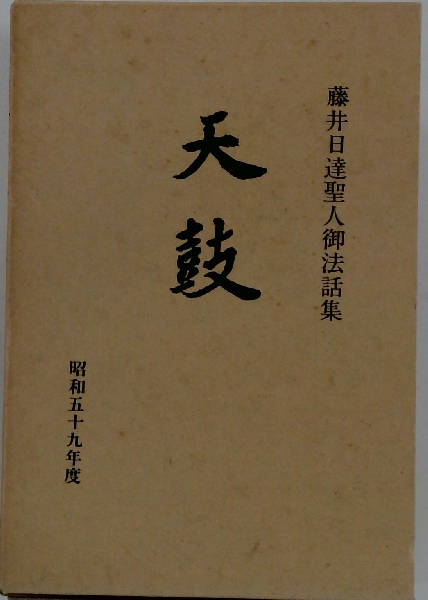 藤井日達聖人御法話集
天鼓
昭和五十九年度